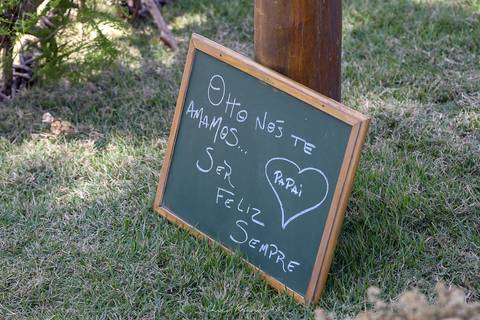 Otto Nós te
amamos...
Ser
Papai
Feliz
Sempre